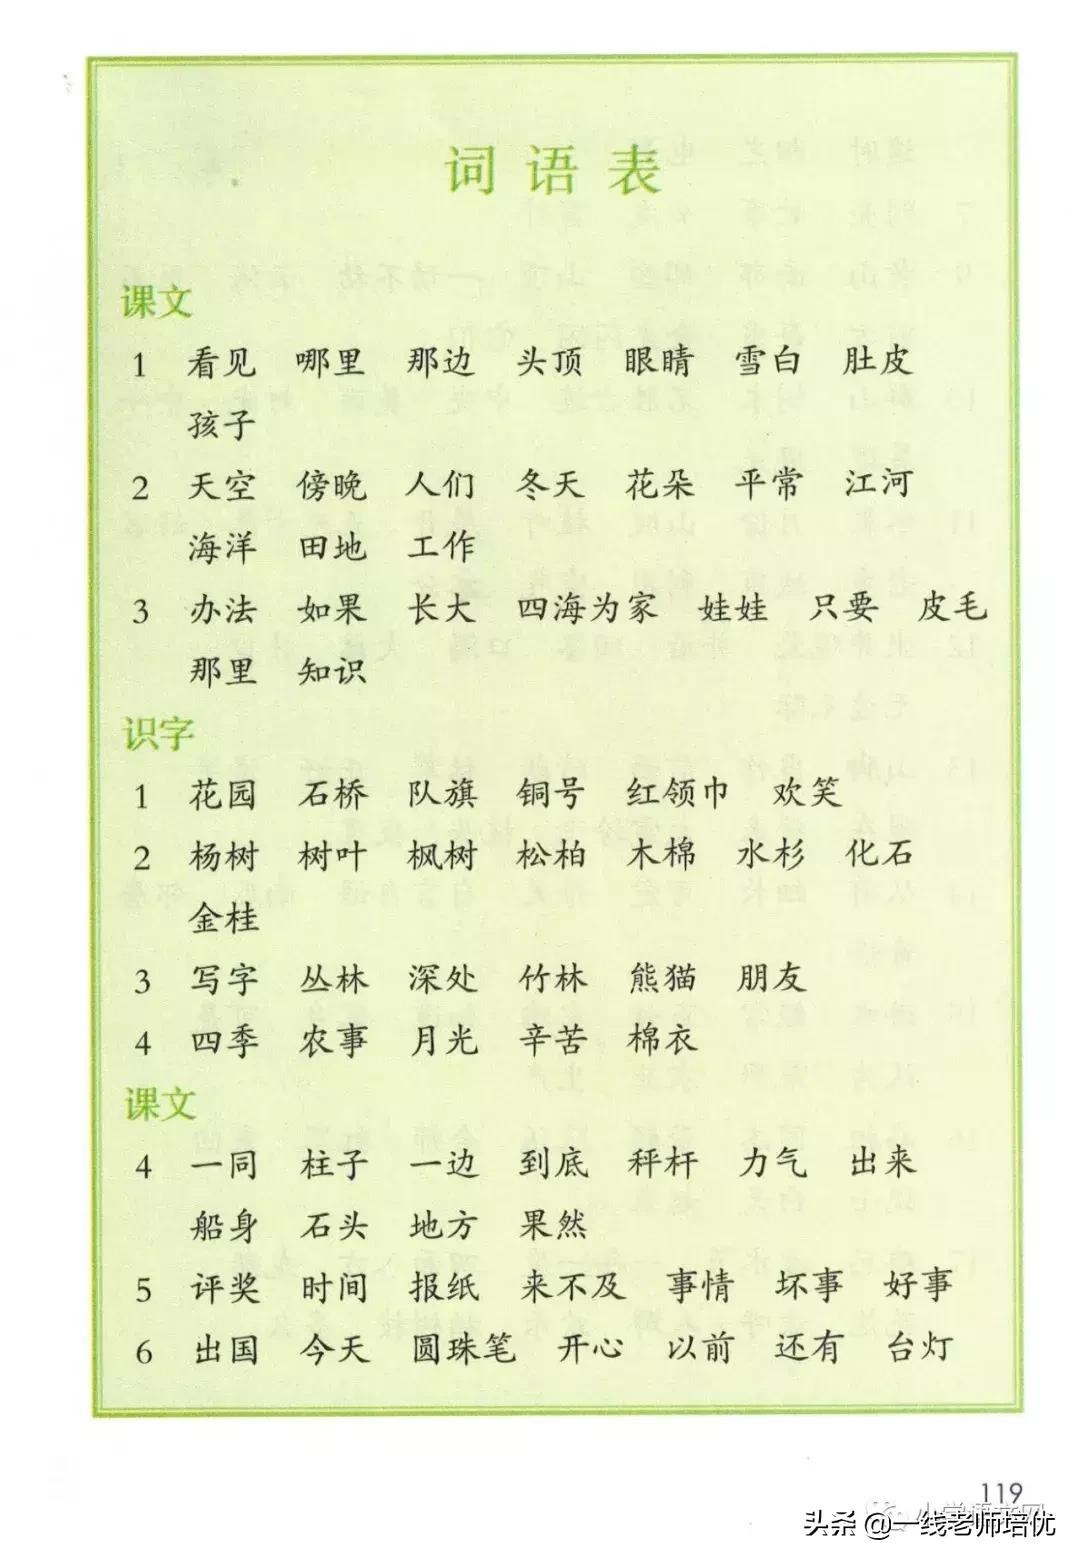 词语表
课文
1 看见 哪里 那边 头顶 眼睛 雪白 肚皮
孩子
2 天空 傍晚 人们 冬天 花朵 平常 江河
海洋 田地 工作
3 办法 如果 长大 四海为家 娃娃 只要 皮毛
那里 知识
识字
1 花园 石桥 队旗 铜号 红领巾 欢笑
2 杨树 树叶 枫树 松柏 木棉 水杉 化石
金桂
3 写字 丛林 深处 竹林 熊猫 朋友
4 四季 农事 月光 辛苦 棉衣
课文
4 一同 柱子 一边 到底 秤杆 力气 出来
船身 石头 地方 果然
5 评奖 时间 报纸 来不及 事情 坏事 好事
6 出国 今天 圆珠笔 开心 以前 还有 台灯
119
头条 @一线老师培优